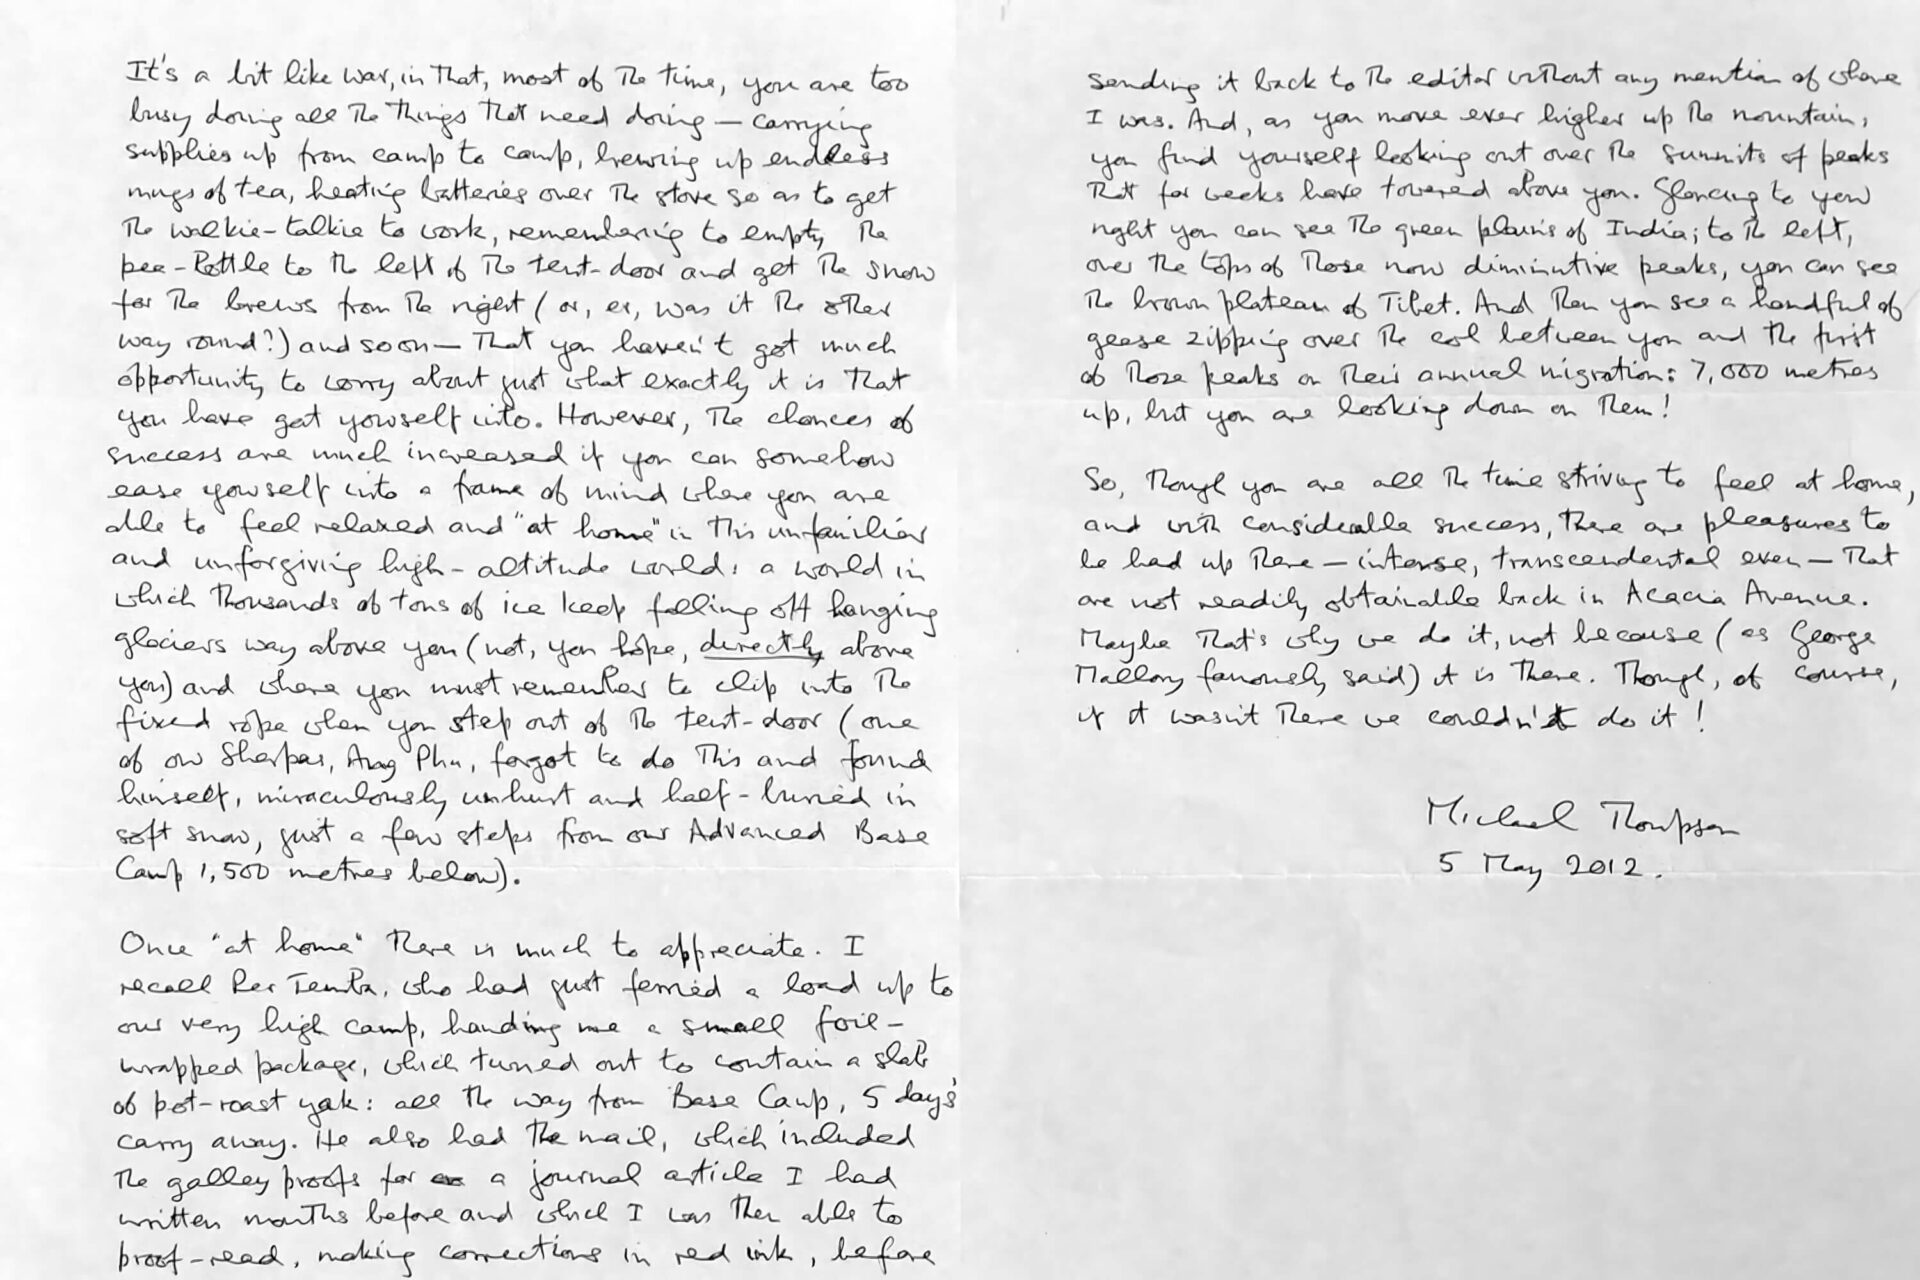 It's a bit like war, in that, most of the time, you are too
busy doing all the things that need doing — carrying
supplies up from camp to camp, brewing up endless
mugs of tea, heating batteries over the stove so as to get
the walkie-talkie to work, remembering to empty the
pee-bottle to the left of the tent-door and get the snow
for the brews from the right (or, er, was it the other
way round?) and so on — that you haven't got much
opportunity to worry about just what exactly it is that
you have got yourself into. However, the chances of
success are much increased if you can somehow
ease yourself into a frame of mind where you are
able to feel relaxed and "at home" in this unfamiliar
and unforgiving high-altitude world: a world in
which thousands of tons of ice keep falling off hanging
glaciers way above you (not, you hope, directly above
you) and where you must remember to clip into the
fixed rope when you step out of the tent-door (one
of our Sherpas, Ang Phu, forgot to do this and found
himself, miraculously unhurt and half-buried in
soft snow, just a few steps from our Advanced Base
Camp 1,500 metres below).
Once "at home" there is much to appreciate. I
recall Pertemba, who had just ferried a load up to
our very high camp, handing me a small foil-
wrapped package, which turned out to contain a slab
of pot-roast yak: all the way from Base Camp, 5 days'
carry away. He also had the mail, which included
the galley proofs for a journal article I had
written months before and which I was then able to
proof-read, making corrections in red ink, before
sending it back to the editor without any mention of where
I was. And, as you move ever higher up the mountain,
you find yourself looking out over the summits of peaks
that for weeks have towered above you. Glancing to your
right you can see the green plains of India; to the left,
over the tops of those now diminutive peaks, you can see
the brown plateau of Tibet. And then you see a handful of
geese zipping over the col between you and the first
of those peaks on their annual migration: 7,000 metres
up, but you are looking down on them!
So, though you are all the time striving to feel at home,
and with considerable success, there are pleasures to
be had up there — intense, transcendental even — that
are not readily obtainable back in Acacia Avenue.
Maybe that's why we do it, not because (as George
Mallory famously said) it is there. Though, of course,
if it wasn't there we couldn't do it!
Michael Thompson
5 May 2012.